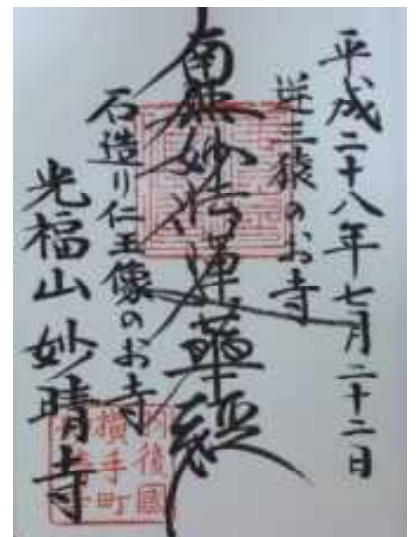 平成二十八年七月二十二日
逆三猿のお寺
南無妙法蓮華経
石造り仁王像のお寺
光福山 妙晴寺
横手町